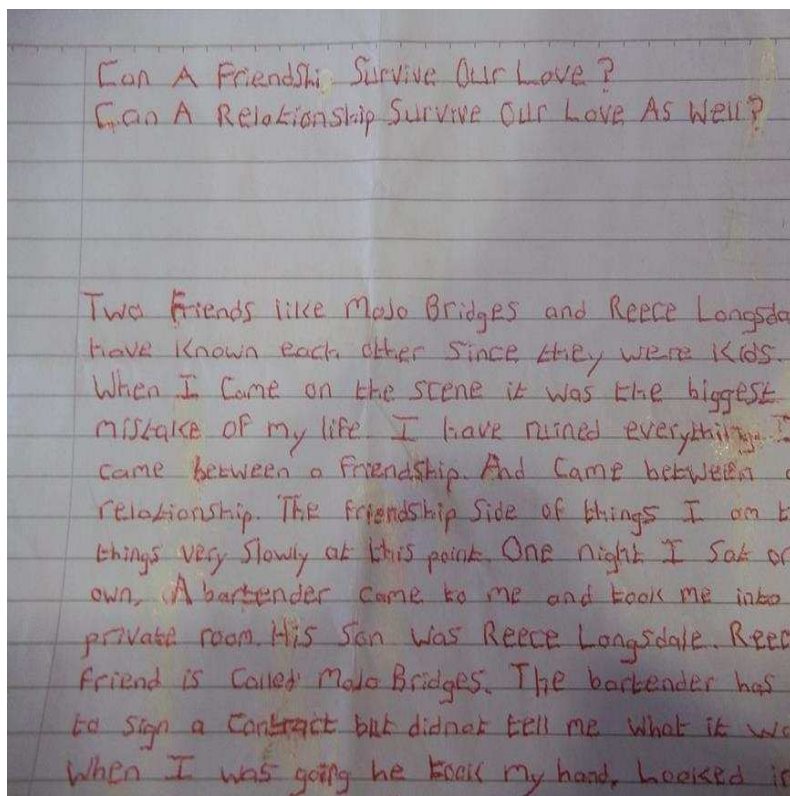 Can A Friendshi Survive Our Love?
Can A Relationship Survive Our Love As Well?
Two Friends like Mojo Bridges and Reece Longsda
have known each other since they were kids.
When I Came on the scene it was the biggest
mistake of my life. I have ruined everything. I
came between a friendship. And Came between
relationship. The friendship Side of things I am t
things very slowly at this point. One night I Sat or
own, A bartender came to me and took me into
private room. His Son was Reece Longsdale. Reec
friend is Called Mojo Bridges. The bartender has
to sign a Contract but didnot tell me what it wa
When I was going he took my hand, Looked i